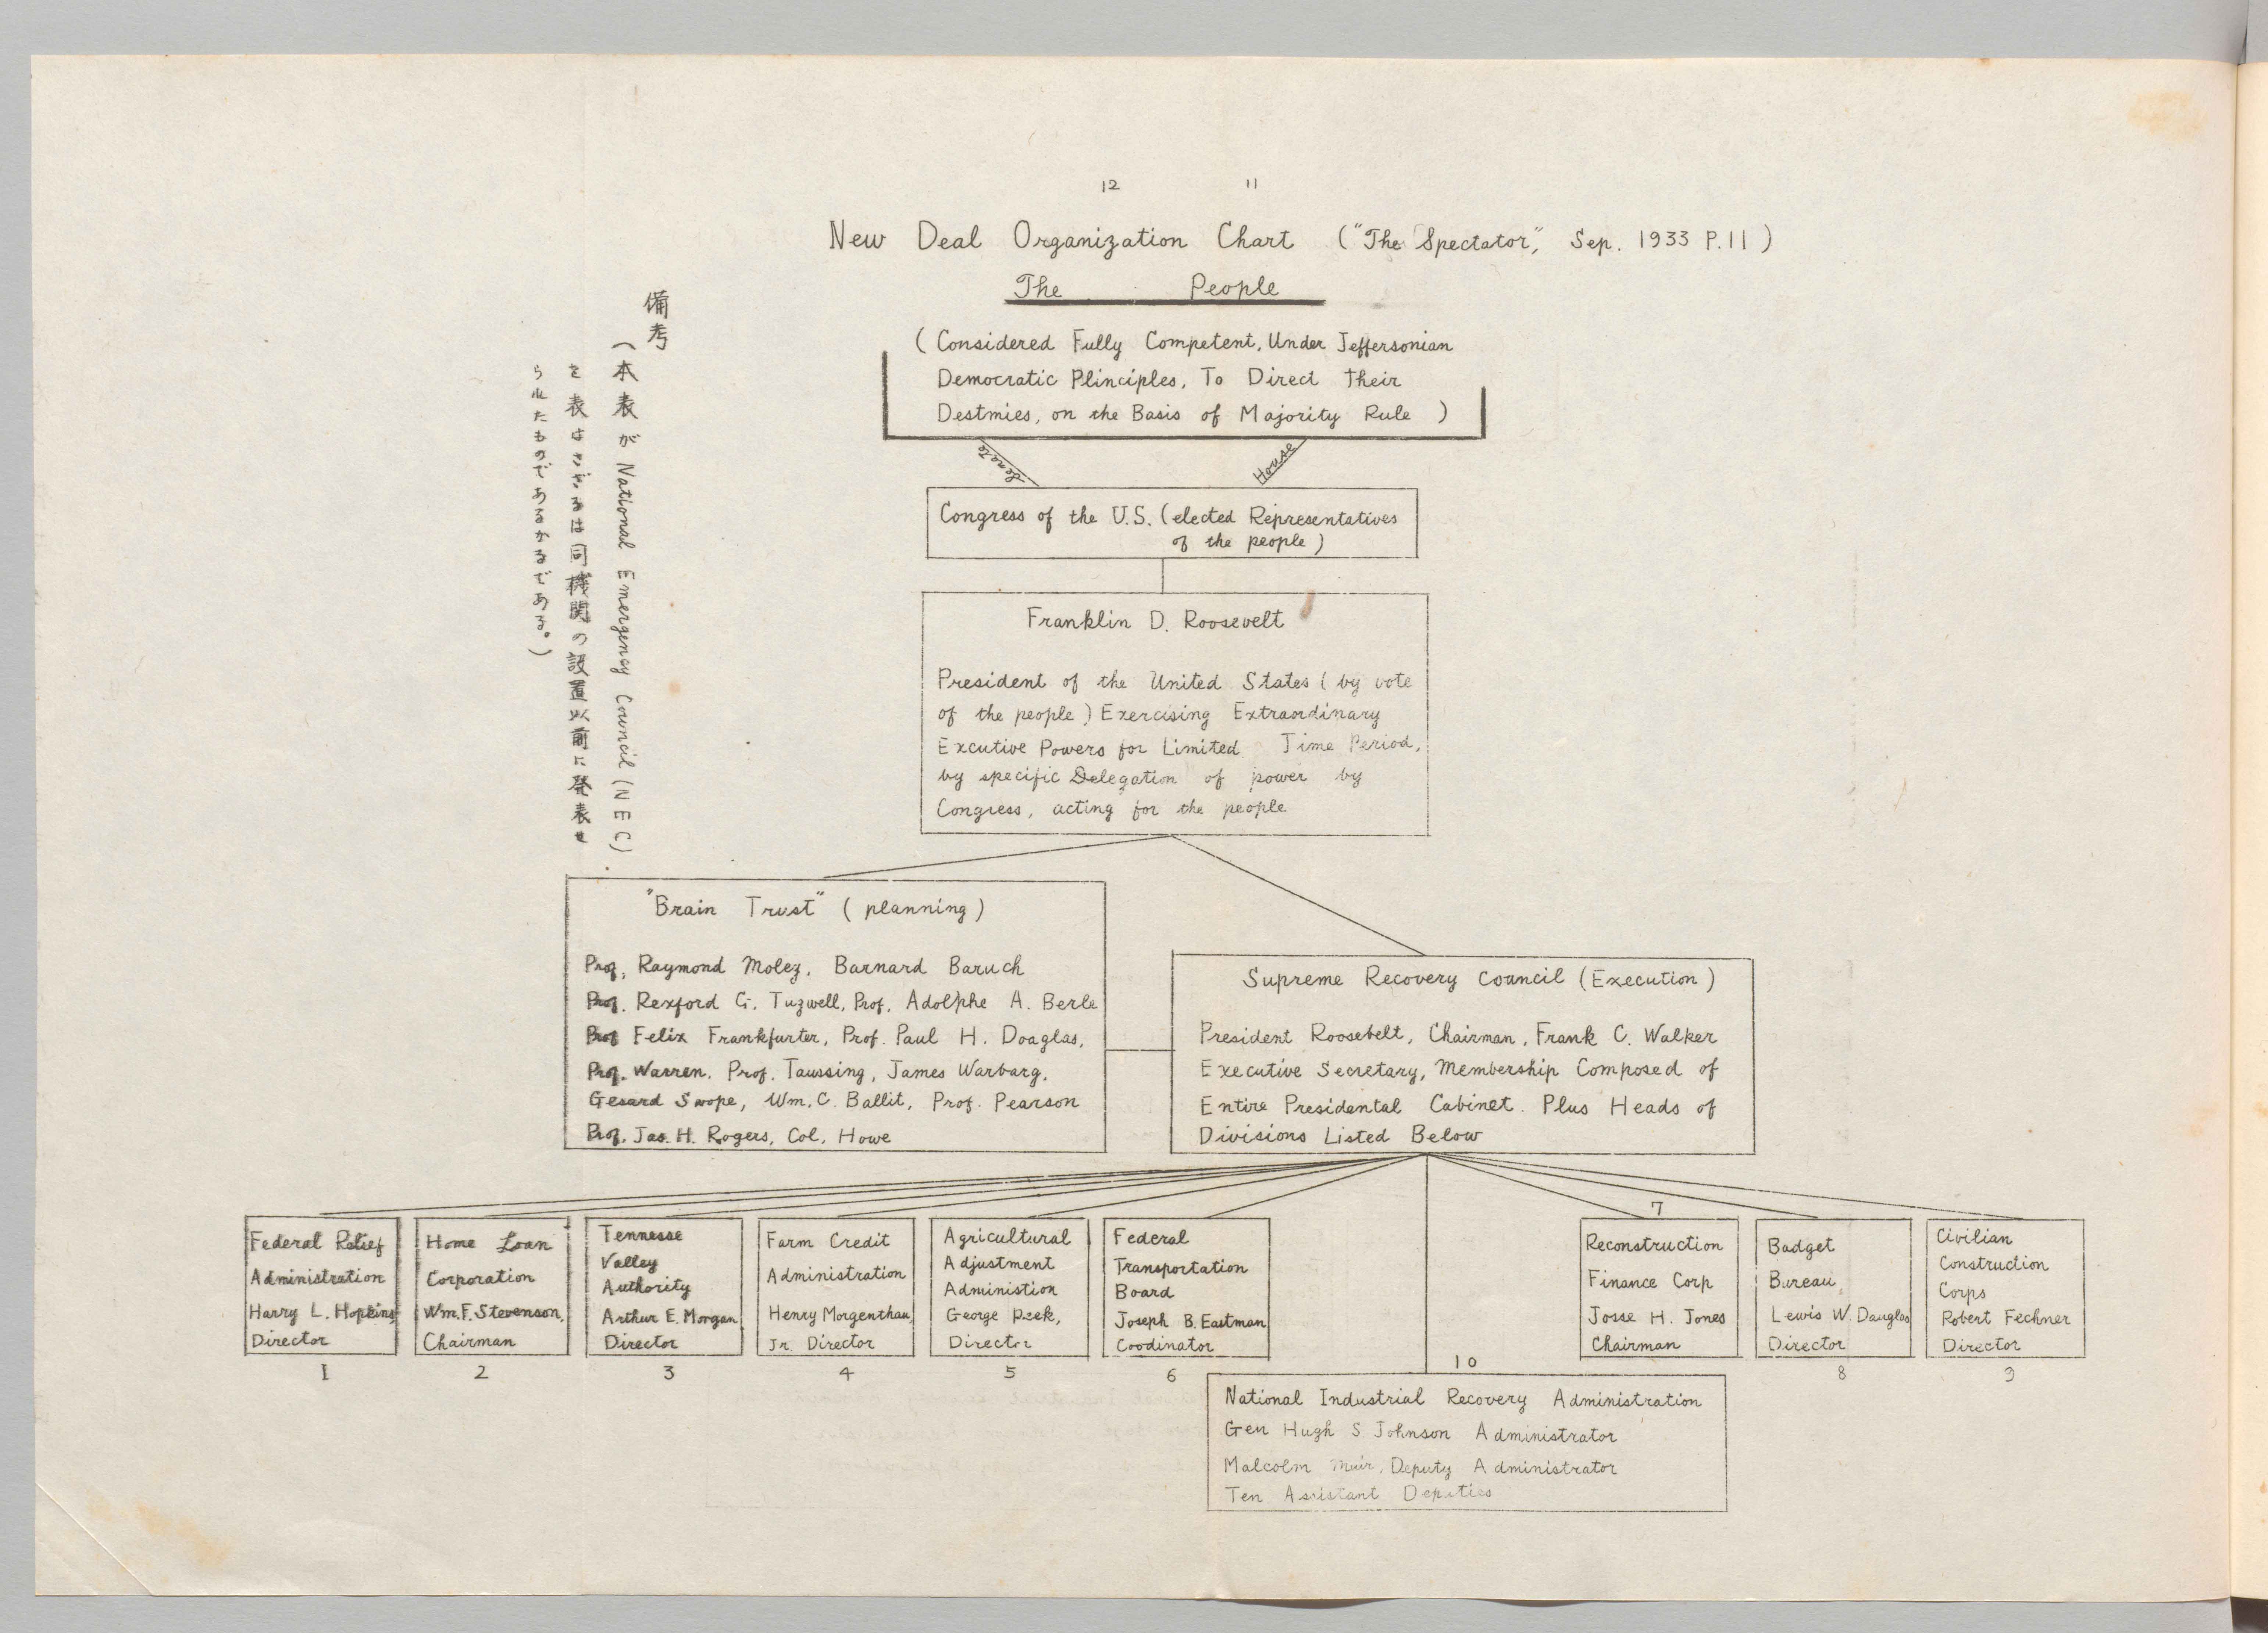 12 11
New Deal Organization Chart ("The Spectator", Sep. 1933 P.11)
The People
(Considered Fully Competent, Under Jeffersonian
Democratic Plinciples, To Direct Their
Destmies, on the Basis of Majority Rule )
Senate House
Congress of the U.S. (elected Representatives
of the people)
Franklin D. Roosevelt
President of the United States (by vote
of the people) Exercising Extraordinary
Excutive Powers for Limited Time Period,
by specific Delegation of power by
Congress, acting for the people
備考
(本表が National Emergency Council (NEC)
を表はさざるは同機関の設置以前に発表せ
られたものであるからである。)
"Brain Trust" (planning)
Prof, Raymond Moley, Barnard Baruch
Prof. Rexford G. Tugwell, Prof. Adolphe A. Berle
Prof Felix Frankfurter, Prof. Paul H. Doaglas,
Prof. Warren. Prof. Taussing, James Warbarg,
Gesard Swope, Wm. C. Ballit, Prof. Pearson
Prof. Jas. H. Rogers, Col. Howe
Supreme Recovery Council (Execution)
President Roosebelt, Chairman, Frank C. Walker
Executive Secretary, Membership Composed of
Entire Presidental Cabinet. Plus Heads of
Divisions Listed Below
Federal Relief
Administration
Harry L. Hopkins
Director
1
Home Loan
Corporation
Wm. F. Stevenson,
Chairman
2
Tennesse
Valley
Authority
Arthur E. Morgan
Director
3
Farm Credit
Administration
Henry Morgenthau,
Jr. Director
4
Agricultural
Adjustment
Administion
George Peek,
Director
5
Federal
Transportation
Board
Joseph B. Eastman
Coodinator
6
7
Reconstruction
Finance Corp
Josse H. Jones
Chairman
Badget
Bureau,
Lewis W. Dauglas
Director
8
Civilian
Construction
Corps
Robert Fechner
Director
9
10
National Industrial Recovery Administration
Gen Hugh S Johnson Administrator
Malcolm Muir, Deputy Administrator
Ten Assistant Deputies